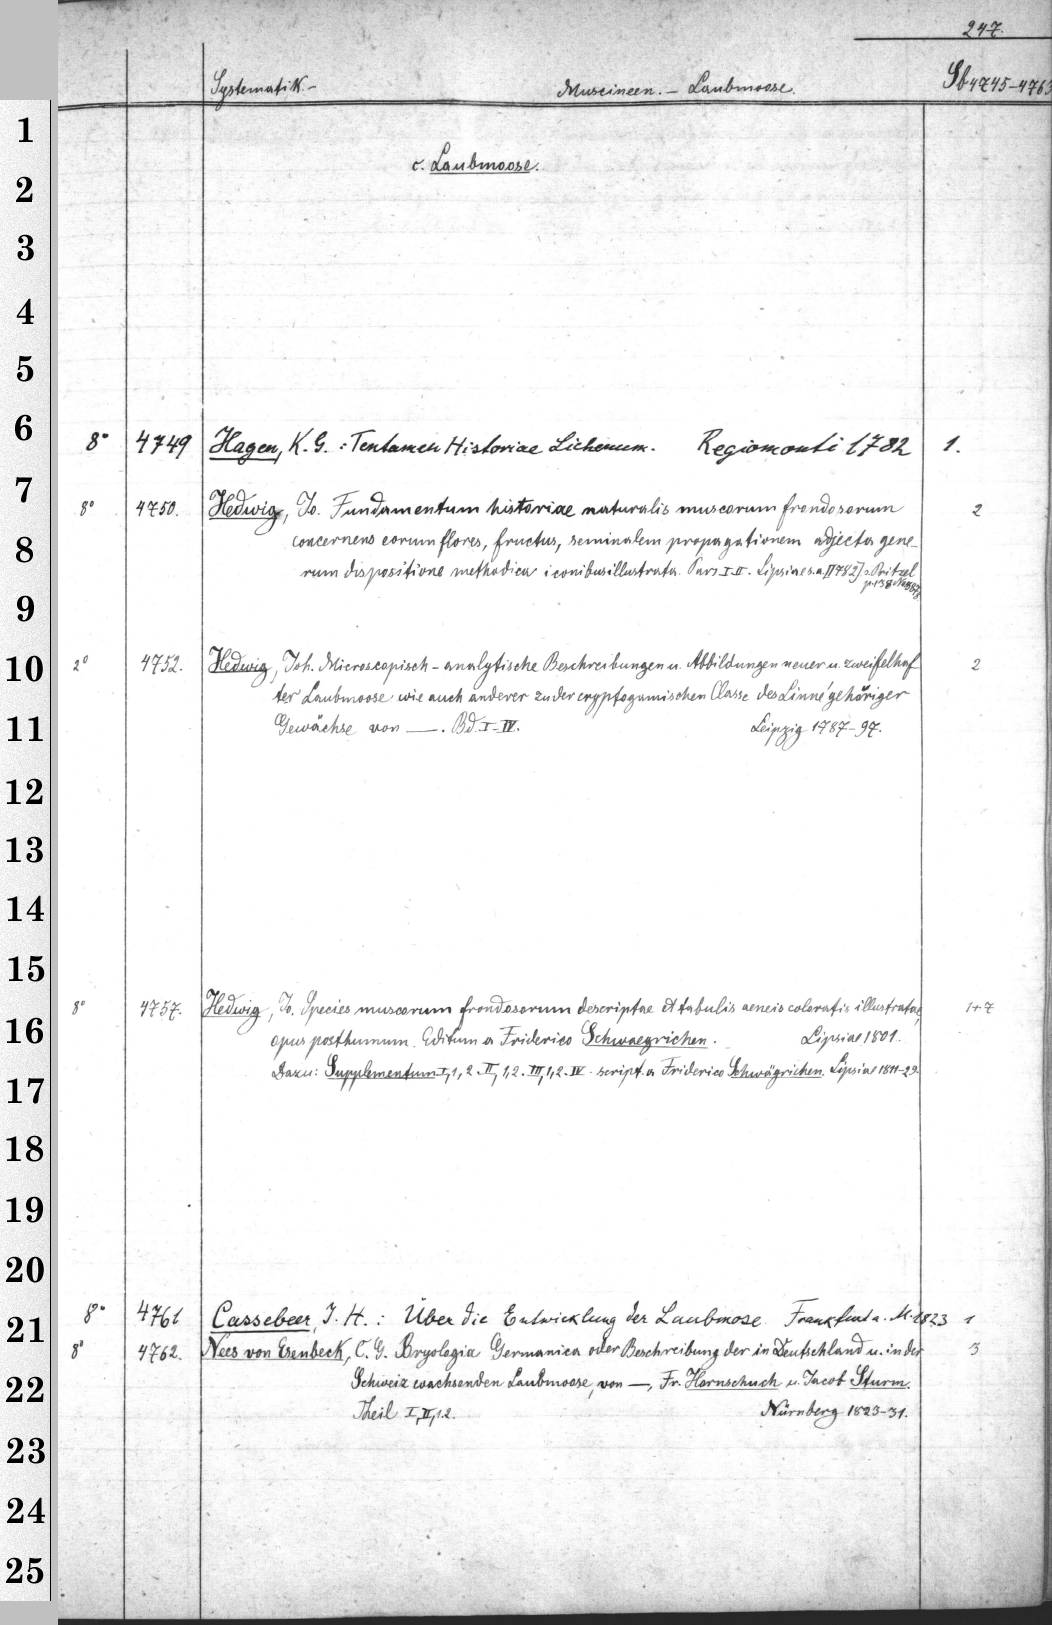 247.
Systematik.- Muscineen. - Laubmoose. Sb 4745-4763
1
c. Laubmoose.
2
3
4
5
6
8° 4749 Hagen, K. G. : Tentamen Historiae Lichenum. Regiomonti 1782 1.
7
8° 4750. Hedwig, Jo. Fundamentum historiae naturalis muscorum frondosorum 2
8 concernens eorum flores, fructus, seminalem propagationem adjecta gene-
rum dispositione methodica iconibus illustrata. Pars I-II. Lipsiae s.a. [1782] s. Pritzel
p. 138
9
10 2° 4752. Hedwig, Joh. Microscopisch-analytische Beschreibungen u. Abbildungen neuer u. zweifelhaf- 2
ter Laubmoose wie auch anderer zu der cryptogamischen Classe des Linné gehöriger
11 Gewächse von —. Bd. I-IV. Leipzig 1787-97.
12
13
14
15
8° 4757. Hedwig, Jo. Species muscorum frondosorum descriptae et tabulis aeneis coloratis illustratae, 1+7
16 opus posthumum. Editum a Friderico Schwaegrichen. Lipsiae 1801.
Dazu: Supplementum I,1,2. II,1,2. III,1,2. IV. script. a Friderico Schwägrichen. Lipsiae 1811-29.
17
18
19
20
8° 4761 Cassebeer, J. H. : Über die Entwicklung der Laubmose. Frankfurt a. M. 1823 1
21
8° 4762. Nees von Esenbeck, C. G. Bryologia Germanica oder Beschreibung der in Deutschland u. in der 3
22 Schweiz wachsenden Laubmoose, von —, Fr. Hornschuch u. Jacob Sturm.
Theil I,II,1.2. Nürnberg 1823-31.
23
24
25